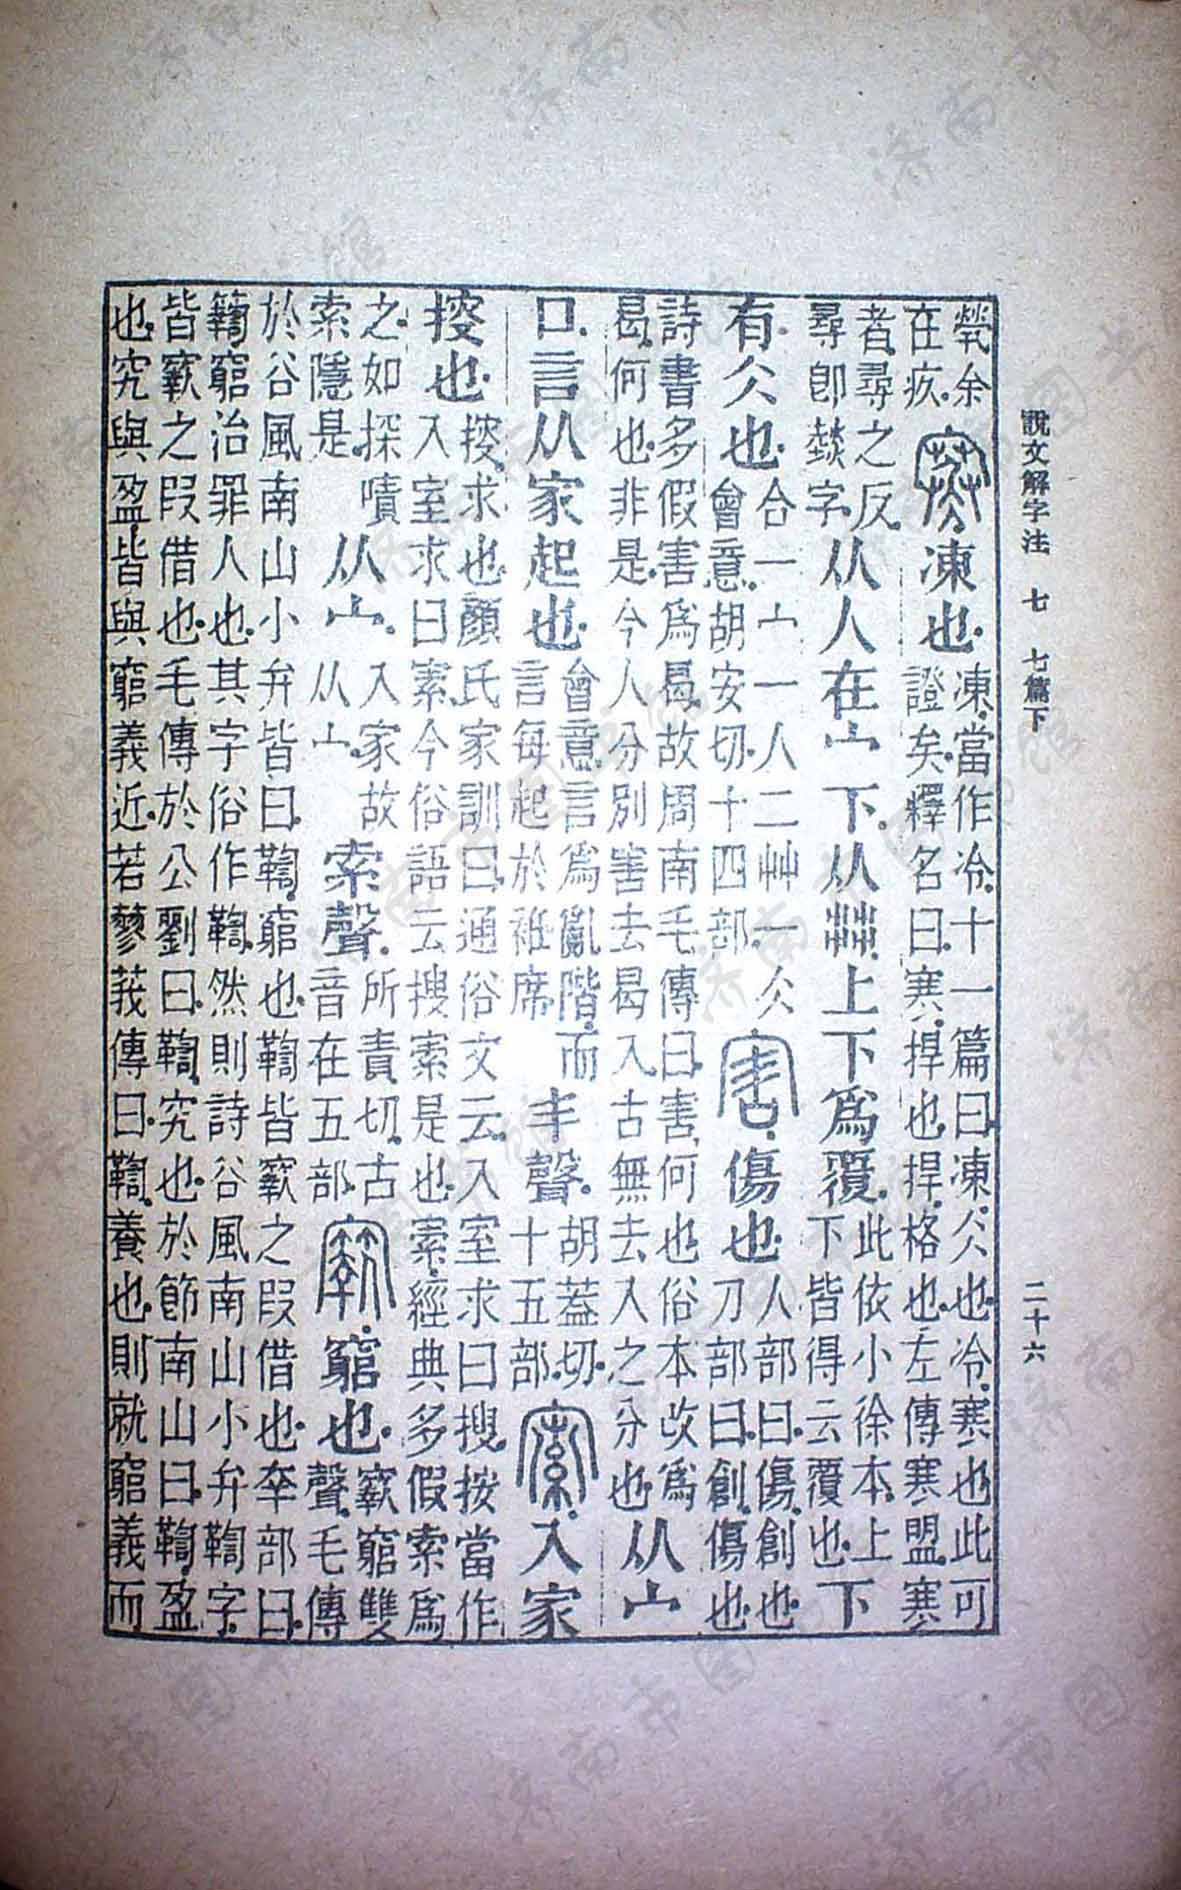 說文解字注 七 七篇下 二十六
煢余在疚寒凍也凍當作冷十一篇曰凍仌也冷寒也此可證矣釋名曰寒捍也捍格也左傳寒盟寒
者尋之反尋卽燅字从人在宀下从茻上下爲覆此依小徐本上下皆得云覆也下
有仌也合一宀一人二茻一仌會意胡安切十四部害傷也人部曰傷創也刀部曰創傷也
詩書多假害爲曷故周南毛傳曰害何也俗本改爲曷何也非是今人分別害去曷入古無去入之分也从宀
口言从家起也會意言爲亂階而言每起於袵席丯聲胡葢切十五部𡩡入家
㨙也㨙求也顏氏家訓曰通俗文云入室求曰搜按當作入室求曰𡩡今俗語云搜𡩡是也𡩡經典多假索爲
之如探嘖索隱是从宀入家故从宀索聲所責切古音在五部𡫬窮也𡫬窮雙聲毛傳
於谷風南山小弁皆曰鞫窮也鞫皆𡫬之叚借也㚔部曰𥷚窮治罪人也其字俗作鞫然則詩谷風南山小弁鞫字
皆𡫬之叚借也毛傳於公劉曰鞫究也於節南山曰鞫盈也究與盈皆與窮義近若蓼莪傳曰鞫養也則就窮義而